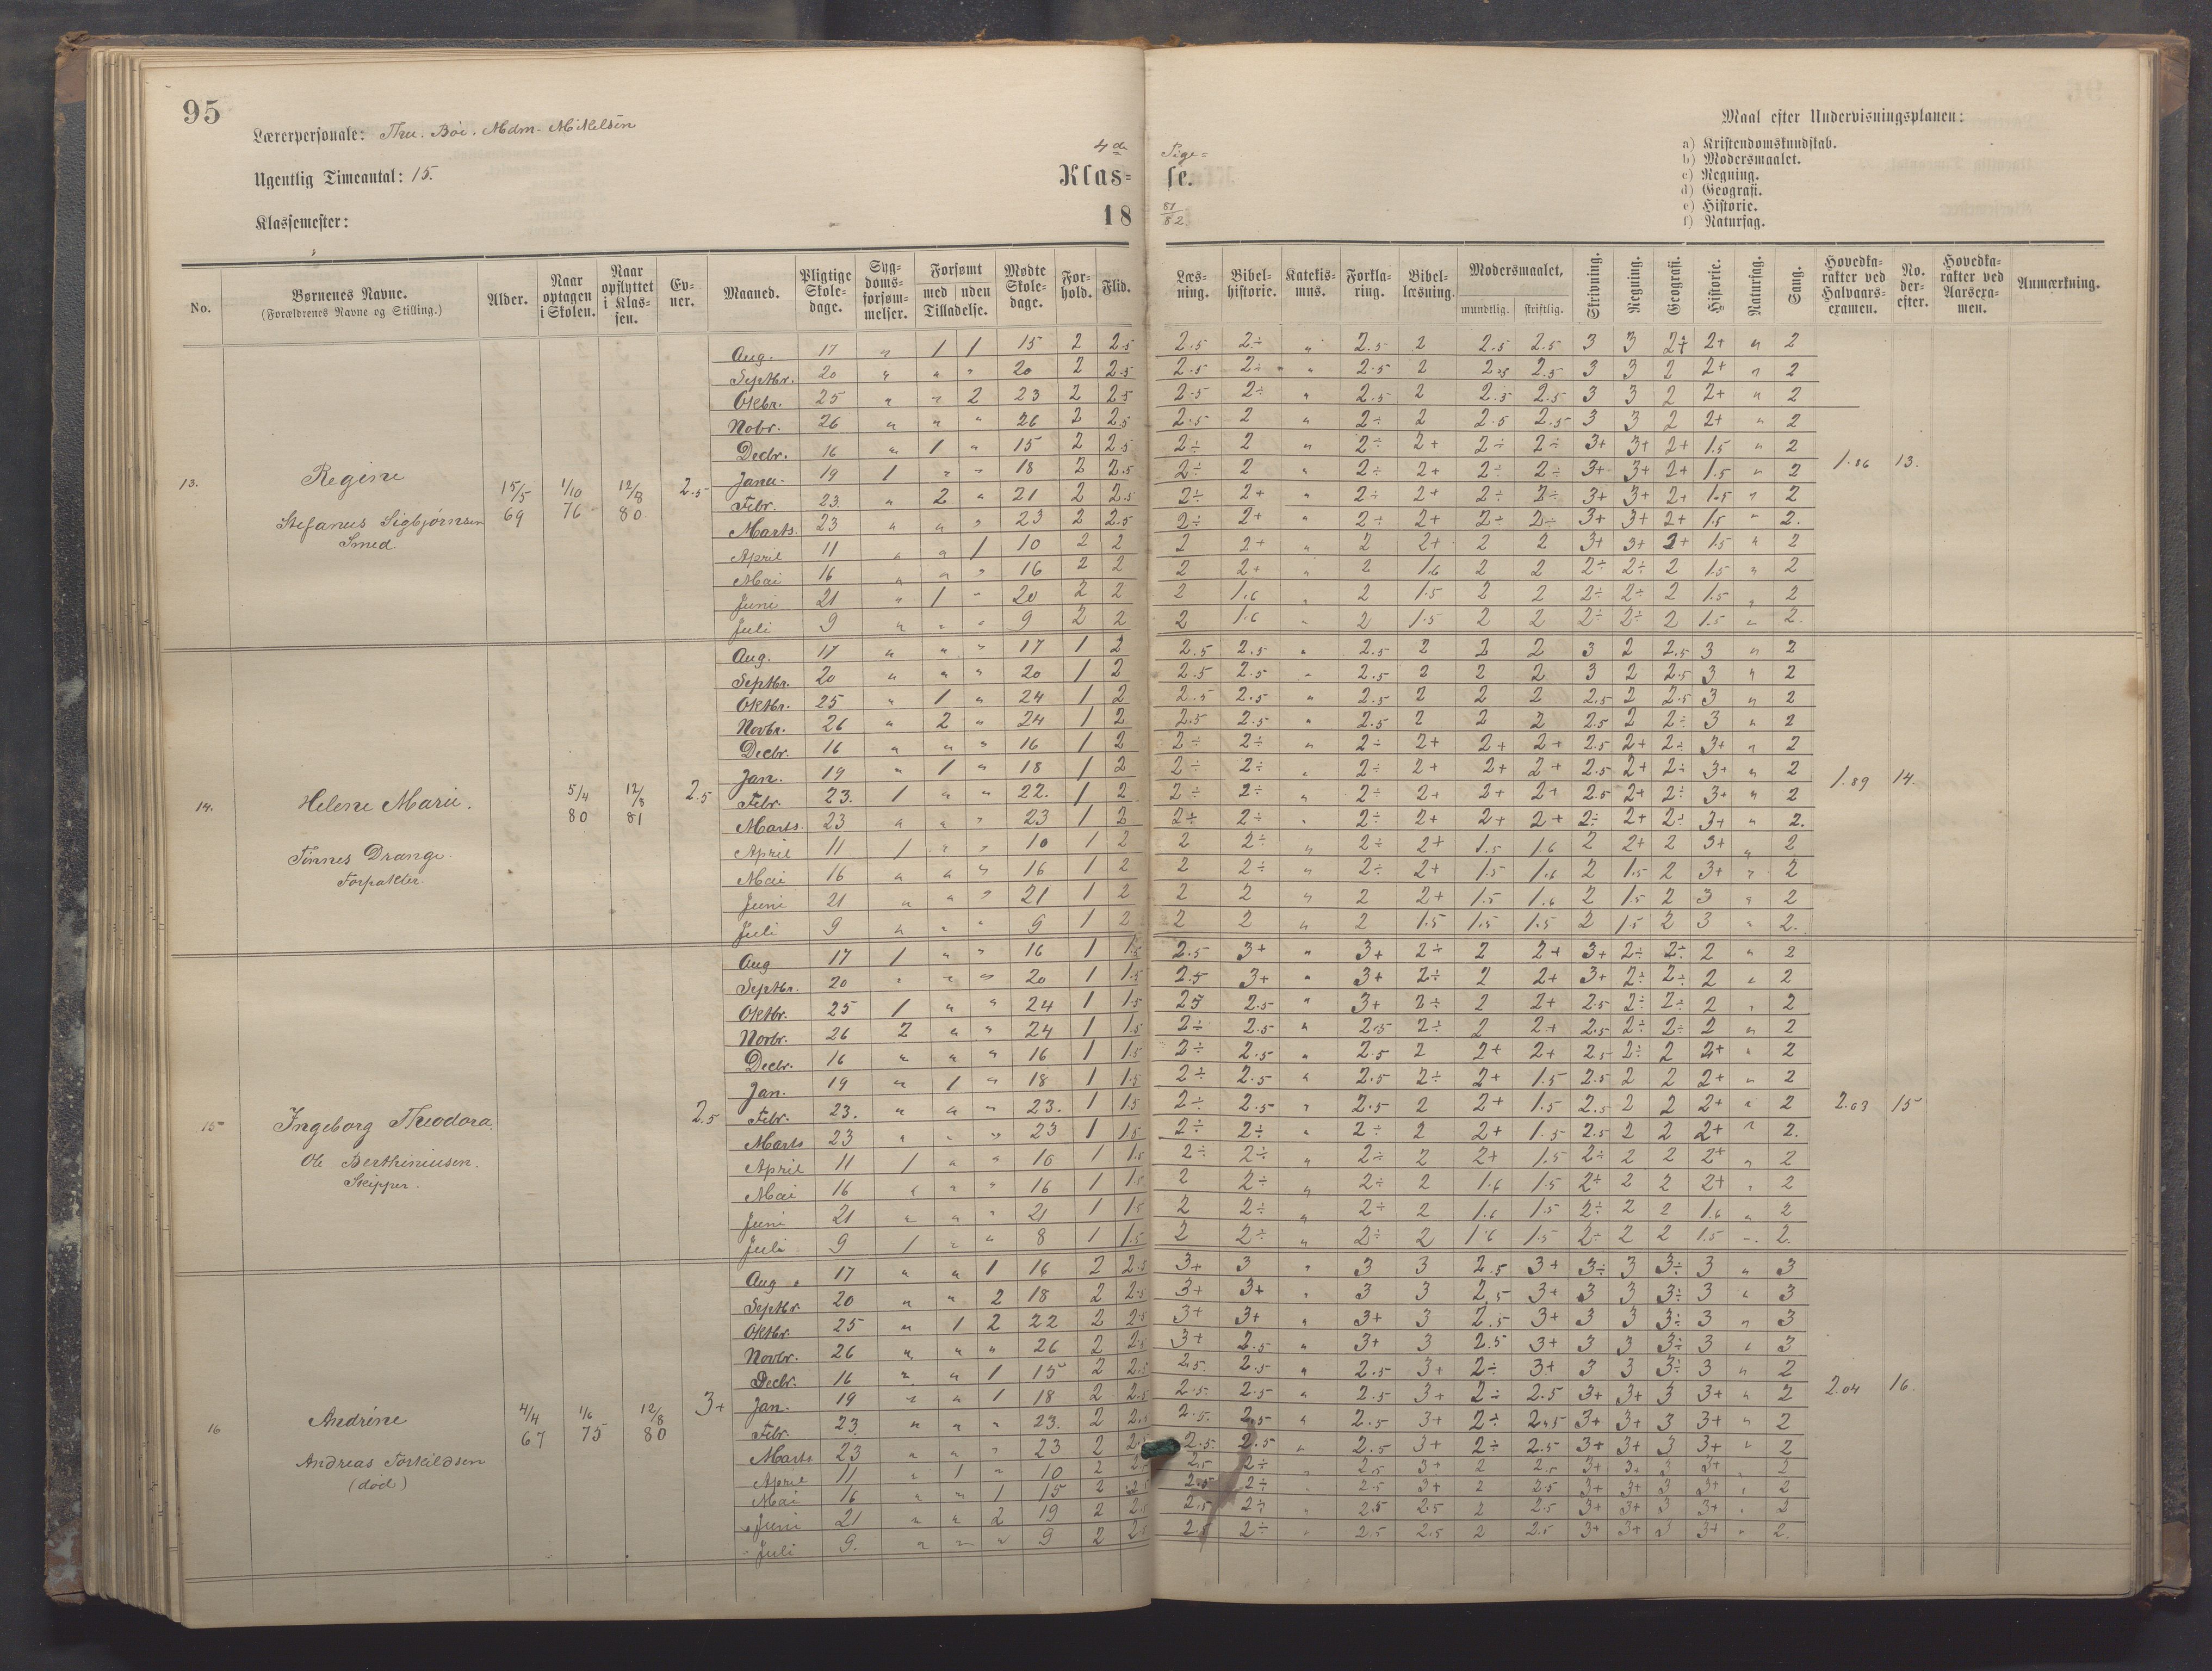 95
Lærerpersonale: Thu. Böe. Mdm. Mikelsen
Ugentlig Timeantal: 15.
Klassemester:
4de Pige=
Klas= se.
18 81/82.
Maal efter Undervisningsplanen:
a) Kristendomskundskab.
b) Modersmaalet.
c) Regning.
d) Geografi.
e) Historie.
f) Naturfag.
No. Børnenes Navne. (Forældrenes Navne og Stilling.) Alder. Naar optagen i Skolen. Naar opflyttet i Klassen. Evner. Maaned. Pligtige Skoledage. Sygdomsforsømmelser. Forsømt med uden Tilladelse. Mødte Skoledage. Forhold. Flid. Læsning. Bibelhistorie. Katekismus. Forklaring. Bibellæsning. Modersmaalet, mundtlig. skriftlig. Skrivning. Regning. Geografi. Historie. Naturfag. Sang. Hovedkarakter ved Halvaarsexamen. No. derefter. Hovedkarakter ved Aarsexamen. Anmærkning.
13. Regine
Stefanus Sigbjørnsen
Smed.
15/5 69 1/10 76 12/8 80 2.5 1.86 13.
Aug. 17 " 1 1 15 2 2.5 2.5 2÷ " 2.5 2 2.5 2.5 3 3 2+ 2+ " 2
Septbr. 20 " " " 20 2 2.5 2.5 2÷ " 2.5 2 2.5 2.5 3 3 2 2+ " 2
Okbr. 25 " " 2 23 2 2.5 2.5 2÷ " 2.5 2 2.5 2.5 3 3 2 2+ " 2
Nobr. 26 " " " 26 2 2.5 2.5 2 " 2÷ 2 2.5 2.5 3 3 2 2+ " 2
Decbr. 16 " 1 " 15 2 2.5 2÷ 2 " 2÷ 2+ 2÷ 2÷ 3+ 3+ 2+ 1.5 " 2
Janu. 19 1 " " 18 2 2.5 2÷ 2 " 2÷ 2+ 2÷ 2÷ 3+ 3+ 2+ 1.5 " 2
Febr. 23. " 2 " 21 2 2.5 2÷ 2+ " 2÷ 2+ 2÷ 2÷ 3+ 3+ 2+ 1.5 " 2
Marts. 23 " " " 23 2 2.5 2÷ 2+ " 2÷ 2+ 2÷ 2÷ 3+ 3+ 2+ 1.5 " 2.
April 11 " " 1 10 2 2 2 2+ " 2 2+ 2 2 3+ 3+ 2+ 1.5 " 2
Mai 16 " " " 16 2 2 2 2+ " 2 1.6 2 2 2÷ 2÷ 2 1.5 " 2
Juni 21 " 1 " 20 2 2 2 1.6 " 2 1.5 2 2 2÷ 2÷ 2 1.5 " 2
Juli 9 " " " 9 2 2 2 1.6 " 2 1.5 2 2 2÷ 2÷ 2 1.5 " 2.
14. Helene Marie.
Tönnes Drange.
Forpakter.
5/4 80 12/8 81 2.5 1.89 14.
Aug. 17 " " " 17 1 2 2.5 2.5 " 2.5 2 2 2 3 2 2.5 3 " 2
Septbr. 20 " " " 20 1 2 2.5 2.5 " 2.5 2 2 2 3 2 2.5 3 " 2
Oktbr. 25 " 1 " 24 1 2 2.5 2.5 " 2.5 2 2 2 2.5 2 2.5 3 " 2
Novbr. 26 " 2 " 24 1 2 2.5 2.5 " 2.5 2 2 2 2.5 2 2÷ 3 " 2
Decbr. 16 " " " 16 1 2 2÷ 2÷ " 2÷ 2+ 2+ 2+ 2.5 2+ 2÷ 3+ " 2
Jan. 19 " 1 " 18 1 2 2÷ 2÷ " 2÷ 2+ 2+ 2+ 2.5 2+ 2÷ 3+ " 2
Febr. 23. 1 " " 22. 1 2 2÷ 2÷ " 2÷ 2+ 2+ 2+ 2.5 2+ 2÷ 3+ " 2
Marts. 23 " " " 23 1 2 2÷ 2÷ " 2÷ 2+ 2+ 2+ 2÷ 2+ 2÷ 3+ " 2.
April 11 1 " " 10 1 2 2 2÷ " 2÷ 2+ 1.5 1.6 2 2+ 2 3+ " 2
Mai 16 " " " 16 1 2 2 2÷ " 2÷ 2+ 1.5 1.6 2 1.5 2 3+ " 2
Juni 21 " " " 21 1 2 2 2 " 2 2+ 1.5 1.6 2 1.5 2 3 " 2
Juli 9 " " " 9 1 2 2 2 " 2 1.5 1.5 1.5 2 1.5 2 3 " 2.
15 Ingeborg Theodora.
Ole Berthiniusen.
Skipper.
2.5 2.03 15
Aug 17 1 " " 16 1 1.5 2.5 3+ " 3+ 2÷ 2 2+ 3+ 2÷ 2÷ 2 " 2
Septbr. 20 " " " 20 1 1.5 2.5 3+ " 3+ 2÷ 2 2+ 3+ 2÷ 2÷ 2 " 2
Oktbr. 25 1 " " 24 1 1.5 25 2.5 " 3+ 2÷ 2 2+ 2.5 2÷ 2÷ 2 " 2
Novbr. 26 2 " " 24 1 1.5 2÷ 2.5 " 2.5 2÷ 2 2+ 2.5 2÷ 2÷ 2 " 2
Decbr. 16 " " " 16 1 1.5 2÷ 2.5 " 2.5 2 2+ 2+ 2.5 2÷ 2 2+ " 2
Jan. 19 " 1 " 18 1 1.5 2÷ 2.5 " 2.5 2÷ 2+ 1.5 2.5 2 2 2+ " 2
Febr. 23. " " " 23. 1 1.5 2÷ 2.5 " 2.5 2 2+ 1.5 2.5 2 2 2+ " 2
Marts 23 " " " 23 1 1.5 2÷ 2÷ " 2÷ 2 2+ 1.5 2.5 2 2 2+ " 2.
April 11 1 " " 10 1 1.5 2÷ 2÷ " 2÷ 2 2+ 1.5 2÷ 2 2 2+ " 2
Mai 16 " " " 16 1 1.5 2 2÷ " 2÷ 2 1.6 1.5 2÷ 2 2 2+ " 2
Juni 21 " " " 21 1 1.5 2 2÷ " 2÷ 2 1.6 1.5 2÷ 2 2 1.6 " 2
Juli 9 1 " " 8 1 1.5 2 2÷ " 2÷ 2 1.6 1.5 2÷ 2 2 1.5 " 2.
16 Andrine
Andreas Torkildsen
(död)
4/4 67 1/6 75 12/8 80 3+ 2.04 16.
Aug. 17 " " 1 16 2 2.5 3+ 3 " 3 3 2.5 3+ 3÷ 3 3÷ 3 " 3
Septbr 20 " " 2 18 2 2.5 3+ 3+ " 3 3 2.5 3+ 3 3 3÷ 3 " 3
Oktbr. 25 " 1 2 22 2 2.5 3+ 3+ " 3+ 3 2.5 3+ 3 3 3÷ 3 " 3
Novbr. 26 " " " 26 2 2.5 3+ 2.5 " 3+ 3 2.5 3+ 3 3 3÷ 3 " 3
Decbr. 16 " " 1 15 2 2.5 2.5. 2.5 " 2.5 3+ 2÷ 3+ 3 3 3÷ 3 " 2
Jan. 19 " " 1 18 2 2.5 2.5. 2.5 " 2.5 3+ 2÷ 2.5 3+ 3+ 3 3+ " 2
Febr. 23. " " " 23. 2 2.5 2.5. 2.5 " 2.5 3+ 2÷ 2.5 3+ 3+ 3 3+ " 2
Marts 23 " " " 23 2 2.5 2.5. 2.5 " 2.5 3+ 2÷ 2.5 3+ 3+ 3 3+ " 2
April 11 " 1 " 10 2 2.5 2.5 2÷ " 2.5 3+ 2 2.5 3+ 3+ 3 3+ " 2
Mai 16 " " 1 15 2 2.5 2.5 2÷ " 2.5 3+ 2 2.5 3+ 3+ 3 3+ " 2
Juni 21 " " 2 19 2 2.5 2.5 2÷ " 2.5 2.5 2 2.5 3+ 3+ 3 3+ " 2
Juli 9. " " " 9 2 2.5 2.5 2÷ " 2.5 2.5 2 2.5 3+ 3+ 3 3+ " 2.